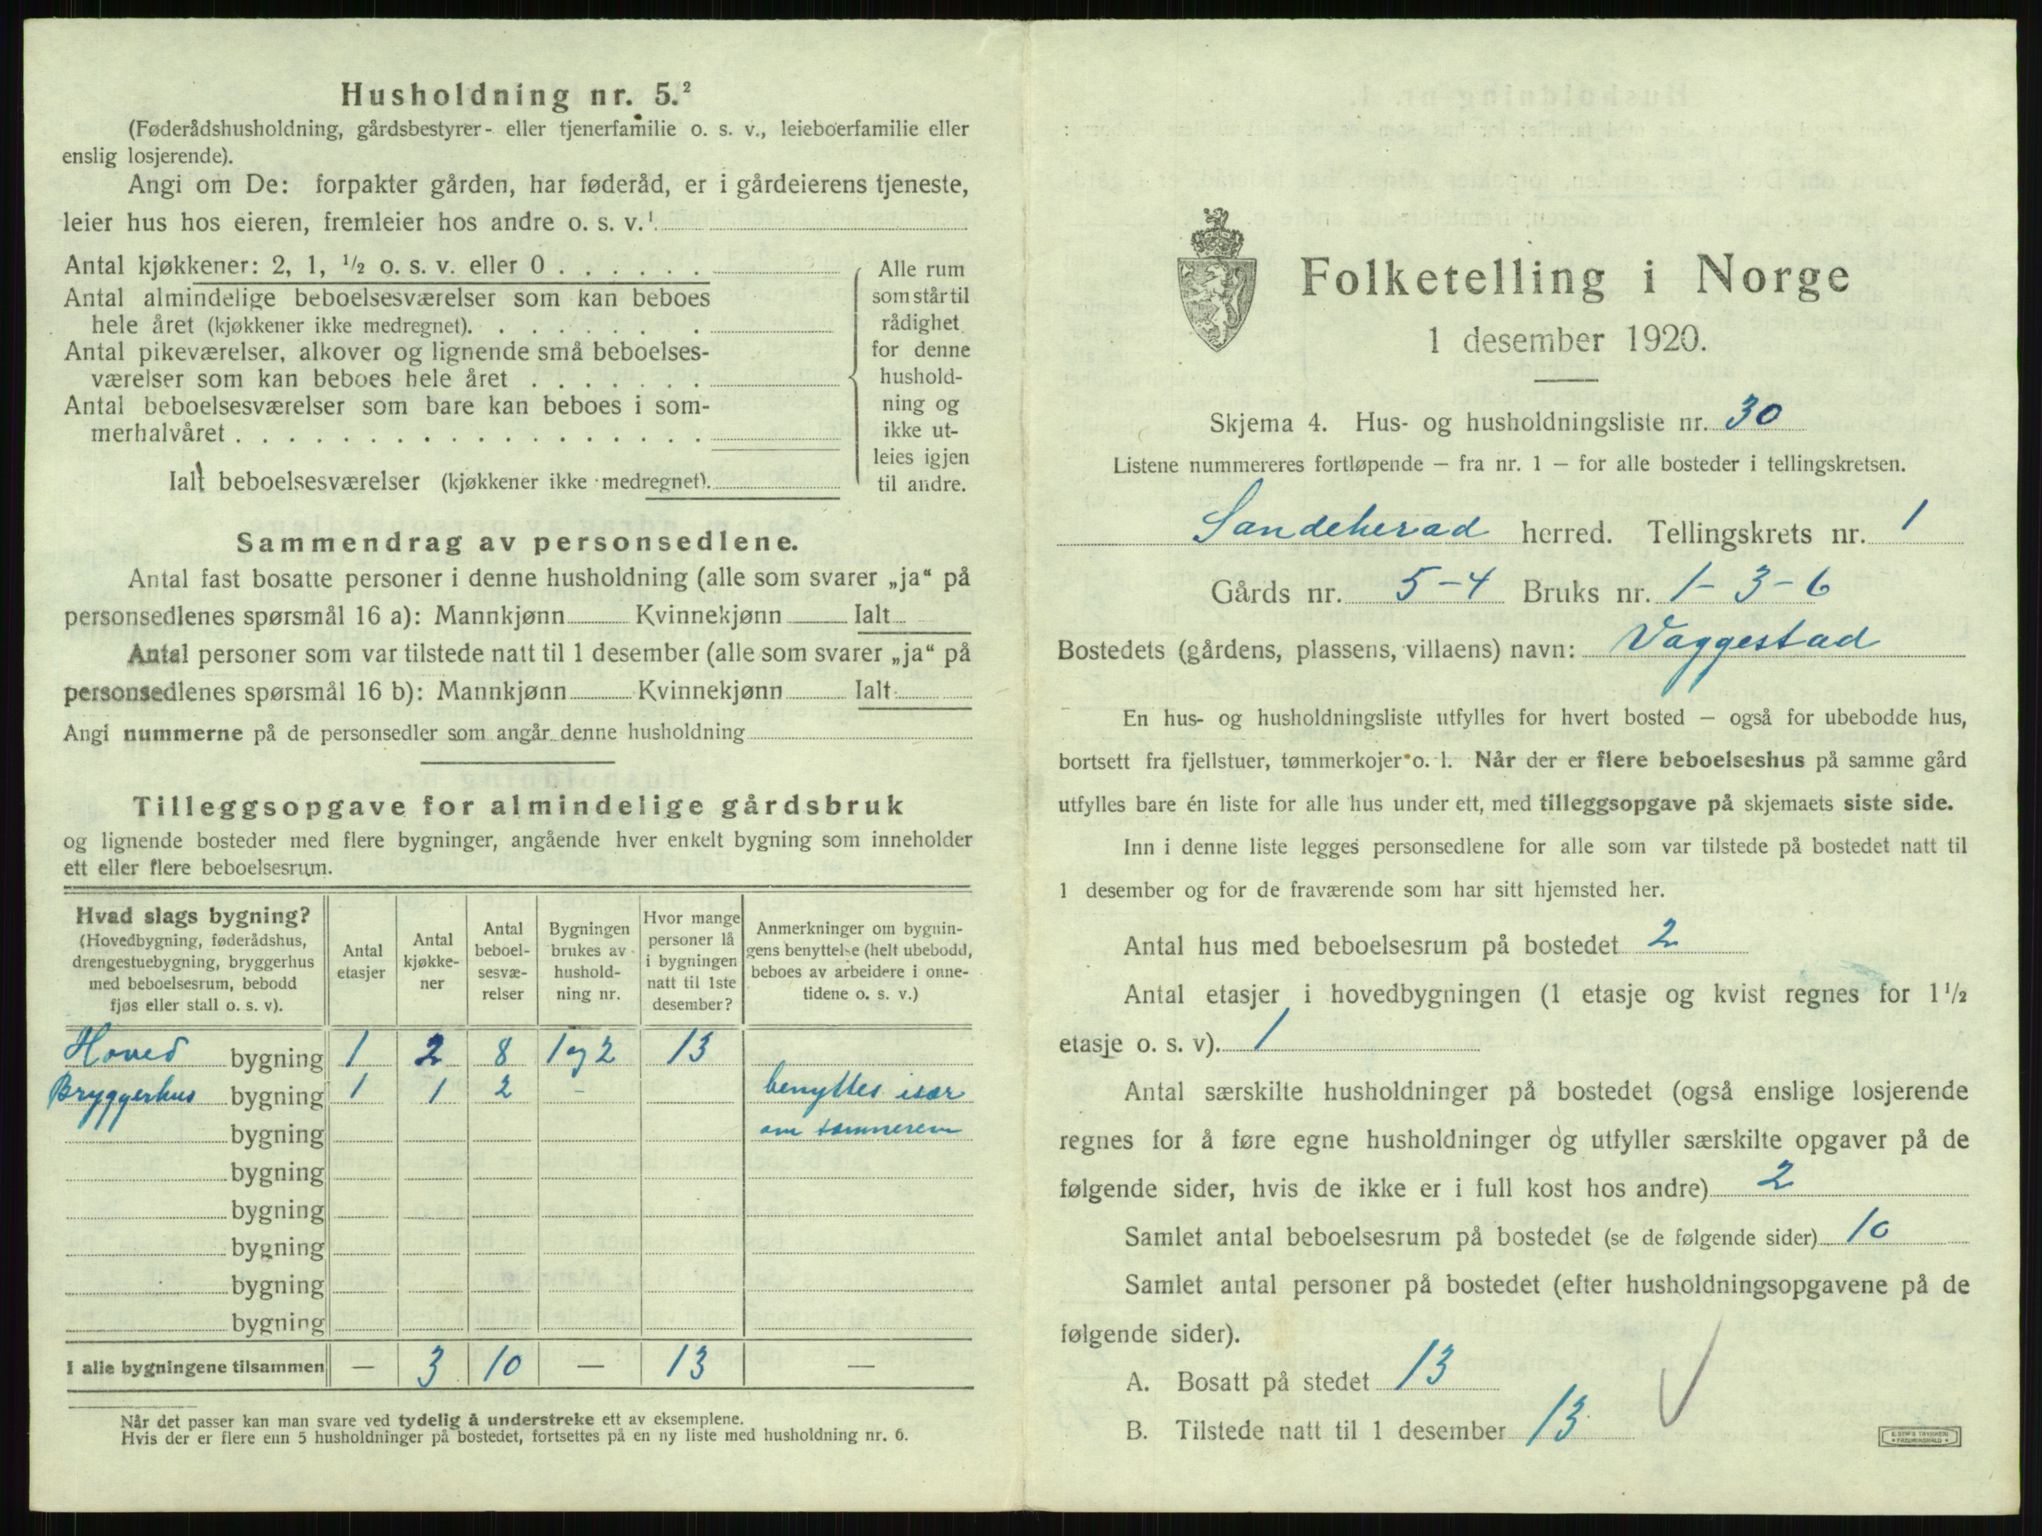 Husholdning nr. 5.²
(Føderådshusholdning, gårdsbestyrer- eller tjenerfamilie o. s. v., leieboerfamilie eller
enslig losjerende).
Angi om De: forpakter gården, har føderåd, er i gårdeierens tjeneste,
leier hus hos eieren, fremleier hos andre o. s. v.¹
Antal kjøkkener: 2, 1, ½ o. s. v. eller 0 . . . . . .
Antal almindelige beboelsesværelser som kan beboes
hele året (kjøkkener ikke medregnet). . . . . . . .
Antal pikeværelser, alkover og lignende små beboelses-
værelser som kan beboes hele året . . . . . . .
Antal beboelsesværelser som bare kan beboes i som-
merhalvåret . . . . . . . . . . . . . . . . . .
Ialt beboelsesværelser (kjøkkener ikke medregnet).
Alle rum
som står til
rådighet
for denne
hushold-
ning og
ikke ut-
leies igjen
til andre.
Sammendrag av personsedlene.
Antal fast bosatte personer i denne husholdning (alle som svarer „ja“ på
personsedlenes spørsmål 16 a): Mannkjønn Kvinnekjønn Ialt
Antal personer som var tilstede natt til 1 desember (alle som svarer „ja“ på
personsedlenes spørsmål 16 b): Mannkjønn Kvinnekjønn Ialt
Angi nummerne på de personsedler som angår denne husholdning
Tilleggsopgave for almindelige gårdsbruk
og lignende bosteder med flere bygninger, angående hver enkelt bygning som inneholder
ett eller flere beboelsesrum.
Hvad slags bygning?
(Hovedbygning, føderådshus,
drengestuebygning, bryggerhus
med beboelsesrum, bebodd
fjøs eller stall o. s. v).
Antal
etasjer
Antal
kjøkke-
ner
Antal
beboel-
sesvæ-
relser
Bygningen
brukes av
hushold-
ning nr.
Hvor mange
personer lå
i bygningen
natt til 1ste
desember?
Anmerkninger om bygnin-
gens benyttelse (helt ubebodd,
beboes av arbeidere i onne-
tidene o. s. v.)
Hoved bygning 1 2 8 1 og 2 13
Bryggerhus bygning 1 1 2 - benyttes især
bygning om sommeren
bygning
bygning
bygning
bygning
bygning
I alle bygningene tilsammen — 3 10 — 13 —
Når det passer kan man svare ved tydelig å understreke ett av eksemplene.
Hvis der er flere enn 5 husholdninger på bostedet, fortsettes på en ny liste med husholdning nr. 6.
Folketelling i Norge
1 desember 1920.
Skjema 4. Hus- og husholdningsliste nr. 30
Listene nummereres fortløpende – fra nr. 1 – for alle bosteder i tellingskretsen.
Sandeherad herred. Tellingskrets nr. 1
Gårds nr. 5-4 Bruks nr. 1-3-6
Bostedets (gårdens, plassens, villaens) navn: Vaggestad
En hus- og husholdningsliste utfylles for hvert bosted – også for ubebodde hus,
bortsett fra fjellstuer, tømmerkojer o. l. Når der er flere beboelseshus på samme gård
utfylles bare én liste for alle hus under ett, med tilleggsopgave på skjemaets siste side.
Inn i denne liste legges personsedlene for alle som var tilstede på bostedet natt til
1 desember og for de fraværende som har sitt hjemsted her.
Antal hus med beboelsesrum på bostedet 2
Antal etasjer i hovedbygningen (1 etasje og kvist regnes for 1 ½
etasje o. s. v). 1
Antal særskilte husholdninger på bostedet (også enslige losjerende
regnes for å føre egne husholdninger og utfyller særskilte opgaver på de
følgende sider, hvis de ikke er i full kost hos andre) 2
Samlet antal beboelsesrum på bostedet (se de følgende sider) 10
Samlet antal personer på bostedet (efter husholdningsopgavene på de
følgende sider).
A. Bosatt på stedet 13
B. Tilstede natt til 1 desember 13